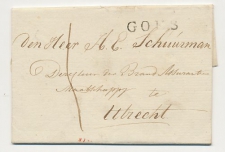 GOES
den Heer A. E. Schuurman
Directeur der Brand Assurantie
Maatschappy
te
Utrecht